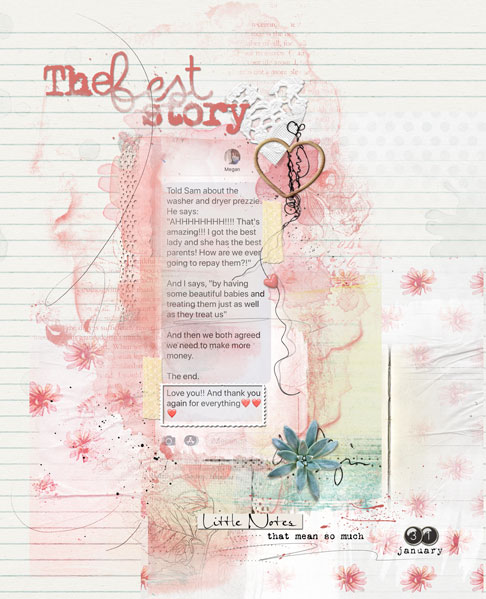 The best
story
Megan
Told Sam about the
washer and dryer prezzie.
He says:
"AHHHHHHHH!!!! That's
amazing!!! I got the best
lady and she has the best
parents! How are we ever
going to repay them?!"
And I says, "by having
some beautiful babies and
treating them just as well
as they treat us"
And then we both agreed
we need to make more
money.
The end.
Love you!! And thank you
again for everything❤️❤️
❤️
Little Notes
that mean so much
31
january